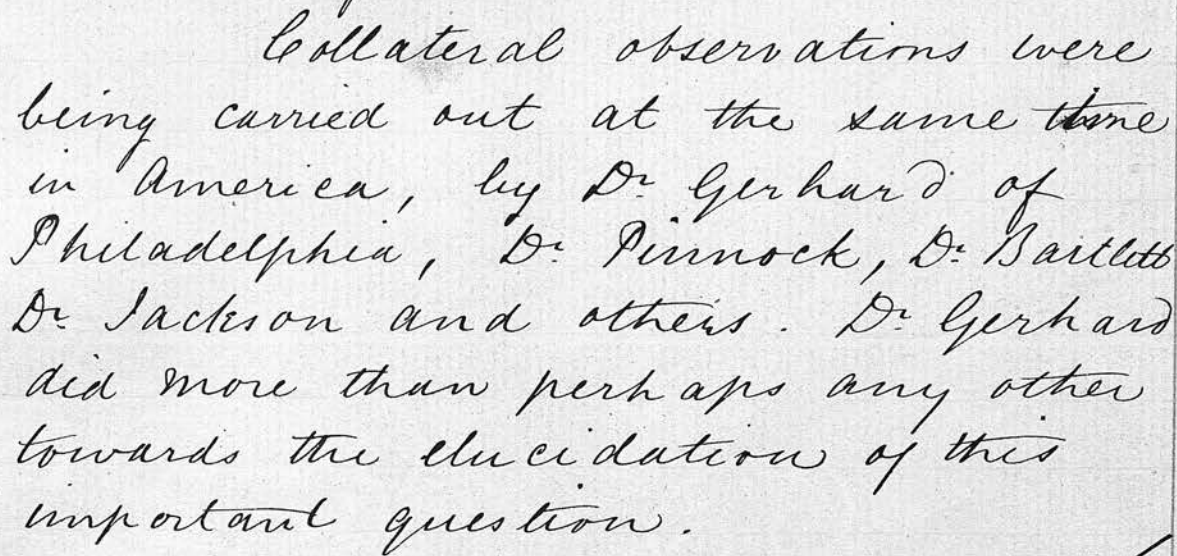 Collateral observations were
being carried out at the same time
in America, by Dr Gerhard of
Philadelphia, Dr Pinnock, Dr Bartlett
Dr Jackson and others. Dr Gerhard
did more than perhaps any other
towards the elucidation of this
important question.